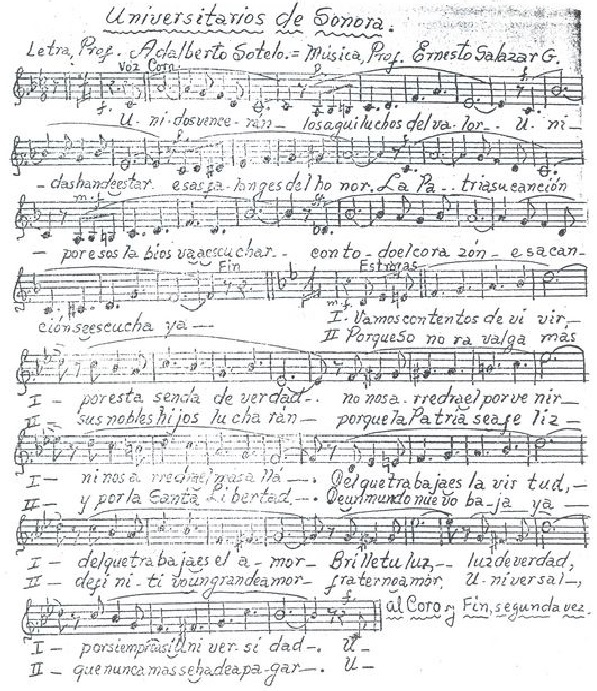 Universitarios de Sonora.
Letra, Prof. Adalberto Sotelo.= Música, Prof. Ernesto Salazar G.
Voz Corn.
U - ni - dos vence - rán - los aguiluchos del va - lor - . U - ni -
- das han de estar esas fa - langes del ho nor. La Pa - tria su canción
- por esos la bios va a escuchar - . con to - do el cora zón - esa can -
Fin
Estrofas
ción se escucha ya —
I - Vamos contentos de vi vir, -
II Porque So no ra valga más
I - por esta senda de verdad - . no nos a - rredra el por ve nir -
II - sus nobles hijos lu cha rán - porque la Patria sea fe liz -
I - ni nos a rredra el mas a llá - . Del que trabaja es la vir tud, -
II - y por la Santa Libertad, - . De un mundo nue vo ba - ja ya -
I - del que trabaja es el a - mor - Brille tu luz, - luz de verdad,
II - defi ni - ti vo un grande amor - fraterno amor, U - niversal -,
al Coro y Fin, segunda vez.
I - por siempre así Uni ver si dad - . U -
II - que nunca mas se ha de apa - gar - . U -